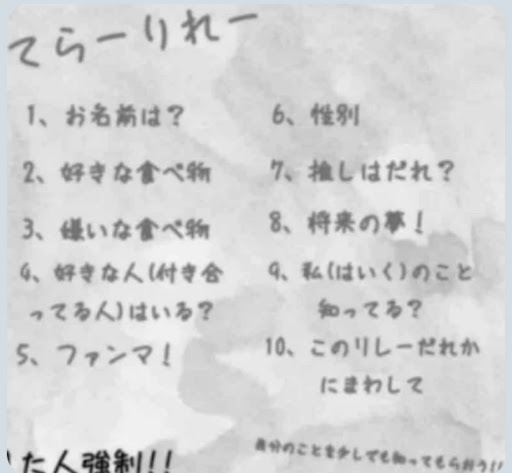 てらーりれー
1、お名前は?
2、好きな食べ物
3、嫌いな食べ物
4、好きな人(付き合
ってる人)はいる?
5、ファンマ!
6、性別
7、推しはだれ?
8、将来の夢!
9、私(はいく)のこと
知ってる?
10、このリレーだれか
にまわして
た人強制!!
自分のことを少しでも知ってもらおう!!